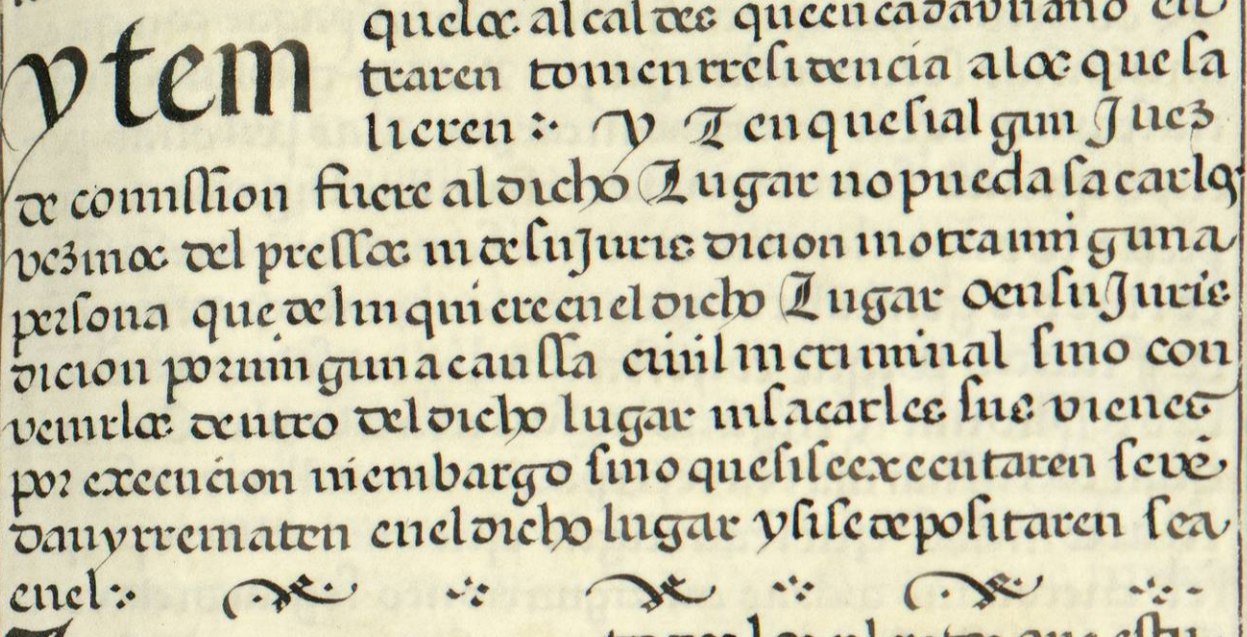 ytem
quelos alcaldes queencadavnaño en
traren tomenrresidencia alos que sa
lieren : Y Tenquesial gun Juez
de comission fuere aldicho Lugar nopueda sacarlos
vezinos del pressos ni desuJuris dicion niotraningguna
persona que delinquiereenel dicho Lugar oensuJuris
dicion porninguna caussa ciuil ni criminal sino con
venirlos dentro deldicho lugar nisacarles sus vienes
por execucion niembargo sino quesiseexecutaren sevē
danyrrematen eneldicho lugar ysisedepositaren sea
enel :